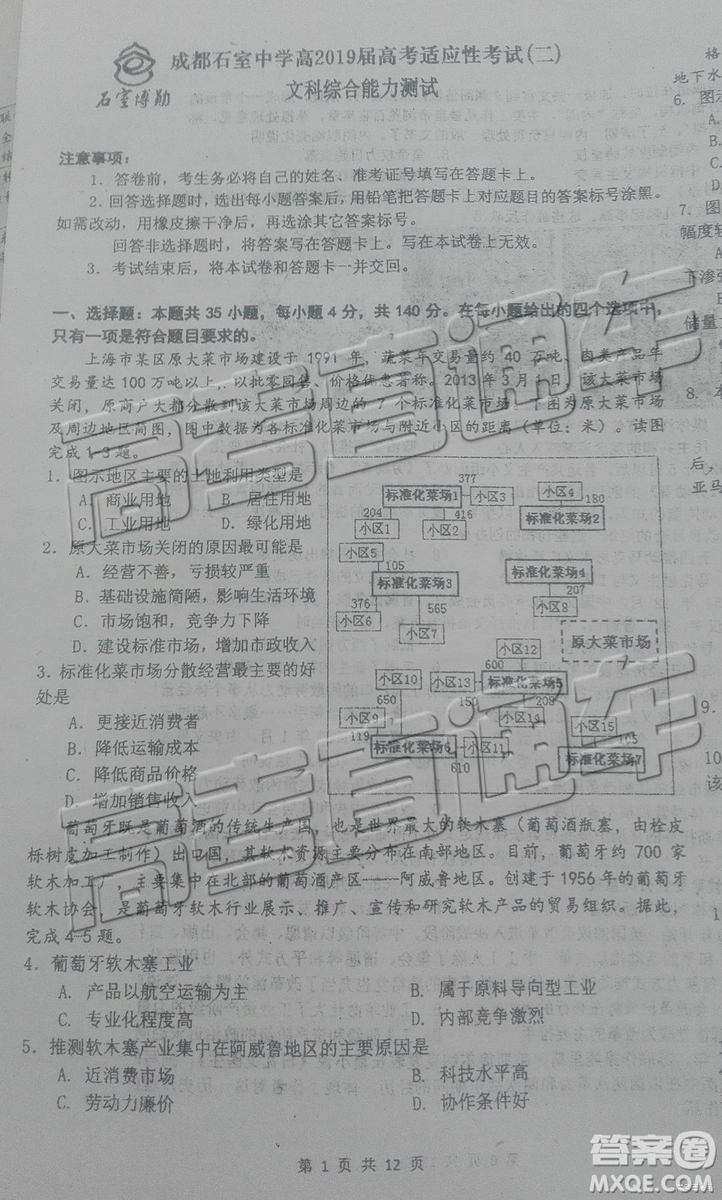 成都石室中学高2019届高考适应性考试(二)
石室博勋
文科综合能力测试
注意事项：
1．答卷前，考生务必将自己的姓名、准考证号填写在答题卡上。
2．回答选择题时，选出每小题答案后，用铅笔把答题卡上对应题目的答案标号涂黑。
如需改动，用橡皮擦干净后，再选涂其它答案标号。
回答非选择题时，将答案写在答题卡上。写在本试卷上无效。
3．考试结束后，将本试卷和答题卡一并交回。
一、选择题：本题共 35 小题，每小题 4 分，共 140 分。在每小题给出的四个选项中，
只有一项是符合题目要求的。
上海市某区原大菜市场建设于 1991 年，蔬菜年交易量约 40 万吨、肉类产品年
交易量达 100 万吨以上，以批零回售、价格优惠著称。2013 年 3 月 1 日，该大菜市场
关闭，原商户大都分散到该大菜市场周边的 7 个标准化菜市场。下图为原大菜市场
及周边地区简图，图中数据为各标准化菜场与附近小区的距离（单位：米）。读图
完成 1-3 题。
1．图示地区主要的土地利用类型是
A．商业用地 B．居住用地
C．工业用地 D．绿化用地
2．原大菜市场关闭的原因最可能是
A．经营不善，亏损较严重
B．基础设施简陋，影响生活环境
C．市场饱和，竞争力下降
D．建设标准市场，增加市政收入
3．标准化菜市场分散经营最主要的好
处是
A．更接近消费者
B．降低运输成本
C．降低商品价格
D．增加销售收入
377
标准化菜场1 小区3 小区4 180
204 416 标准化菜场2
小区1 小区2
小区5
105
标准化菜场3 标准化菜场4
376 565 76
小区6 小区7 小区8
小区12 原大菜市场
600
小区10 小区13 标准化菜场5
650 150 208
小区9 小区14 小区15
119 105
标准化菜场6 小区11 标准化菜场7
610
葡萄牙既是葡萄酒的传统生产国，也是世界最大的软木塞（葡萄酒瓶塞，由栓皮
栎树皮加工制作）出口国，其软木资源主要分布在南部地区。目前，葡萄牙约 700 家
软木加工厂，主要集中在北部的葡萄酒产区——阿威鲁地区。创建于 1956 年的葡萄牙
软木协会，是葡萄牙软木行业展示、推广、宣传和研究软木产品的贸易组织。据此，
完成 4-5 题。
4．葡萄牙软木塞工业
A．产品以航空运输为主 B．属于原料导向型工业
C．专业化程度高 D．内部竞争激烈
5．推测软木塞产业集中在阿威鲁地区的主要原因是
A．近消费市场 B．科技水平高
C．劳动力廉价 D．协作条件好
第 1 页 共 12 页
格
地下水
6．图示
7．图
幅度较
下渗
储量
8．
后，
亚马
9．
10
该
高考直通车
高考直通车
答案圈